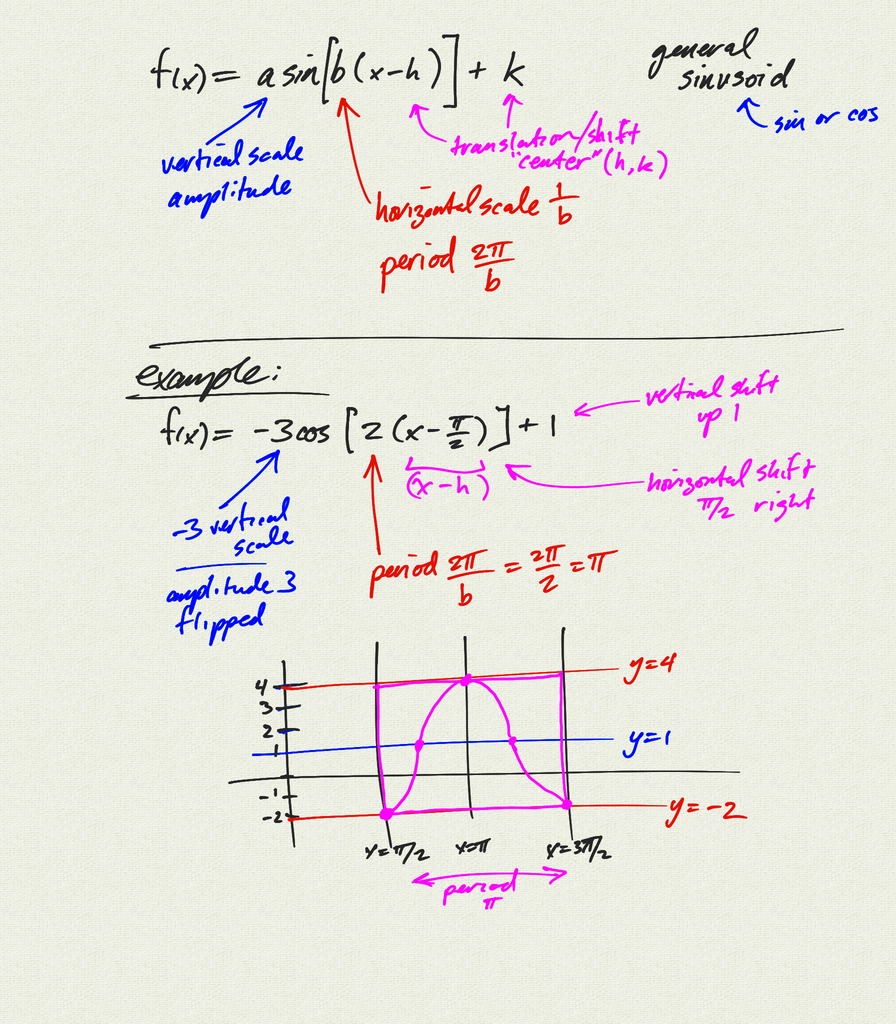 f(x) = a sin[b(x-h)] + k
general
sinusoid
sin or cos
vertical scale
amplitude
translation/shift
"center" (h,k)
horizontal scale 1/b
period 2π/b
example:
f(x) = -3 cos [2(x-π/2)] + 1
vertical shift
up 1
(x-h)
horizontal shift
π/2 right
-3 vertical
scale
amplitude 3
flipped
period 2π/b = 2π/2 = π
4
3
2
1
-1
-2
y=4
y=1
y=-2
x=π/2 x=π x=3π/2
period
π